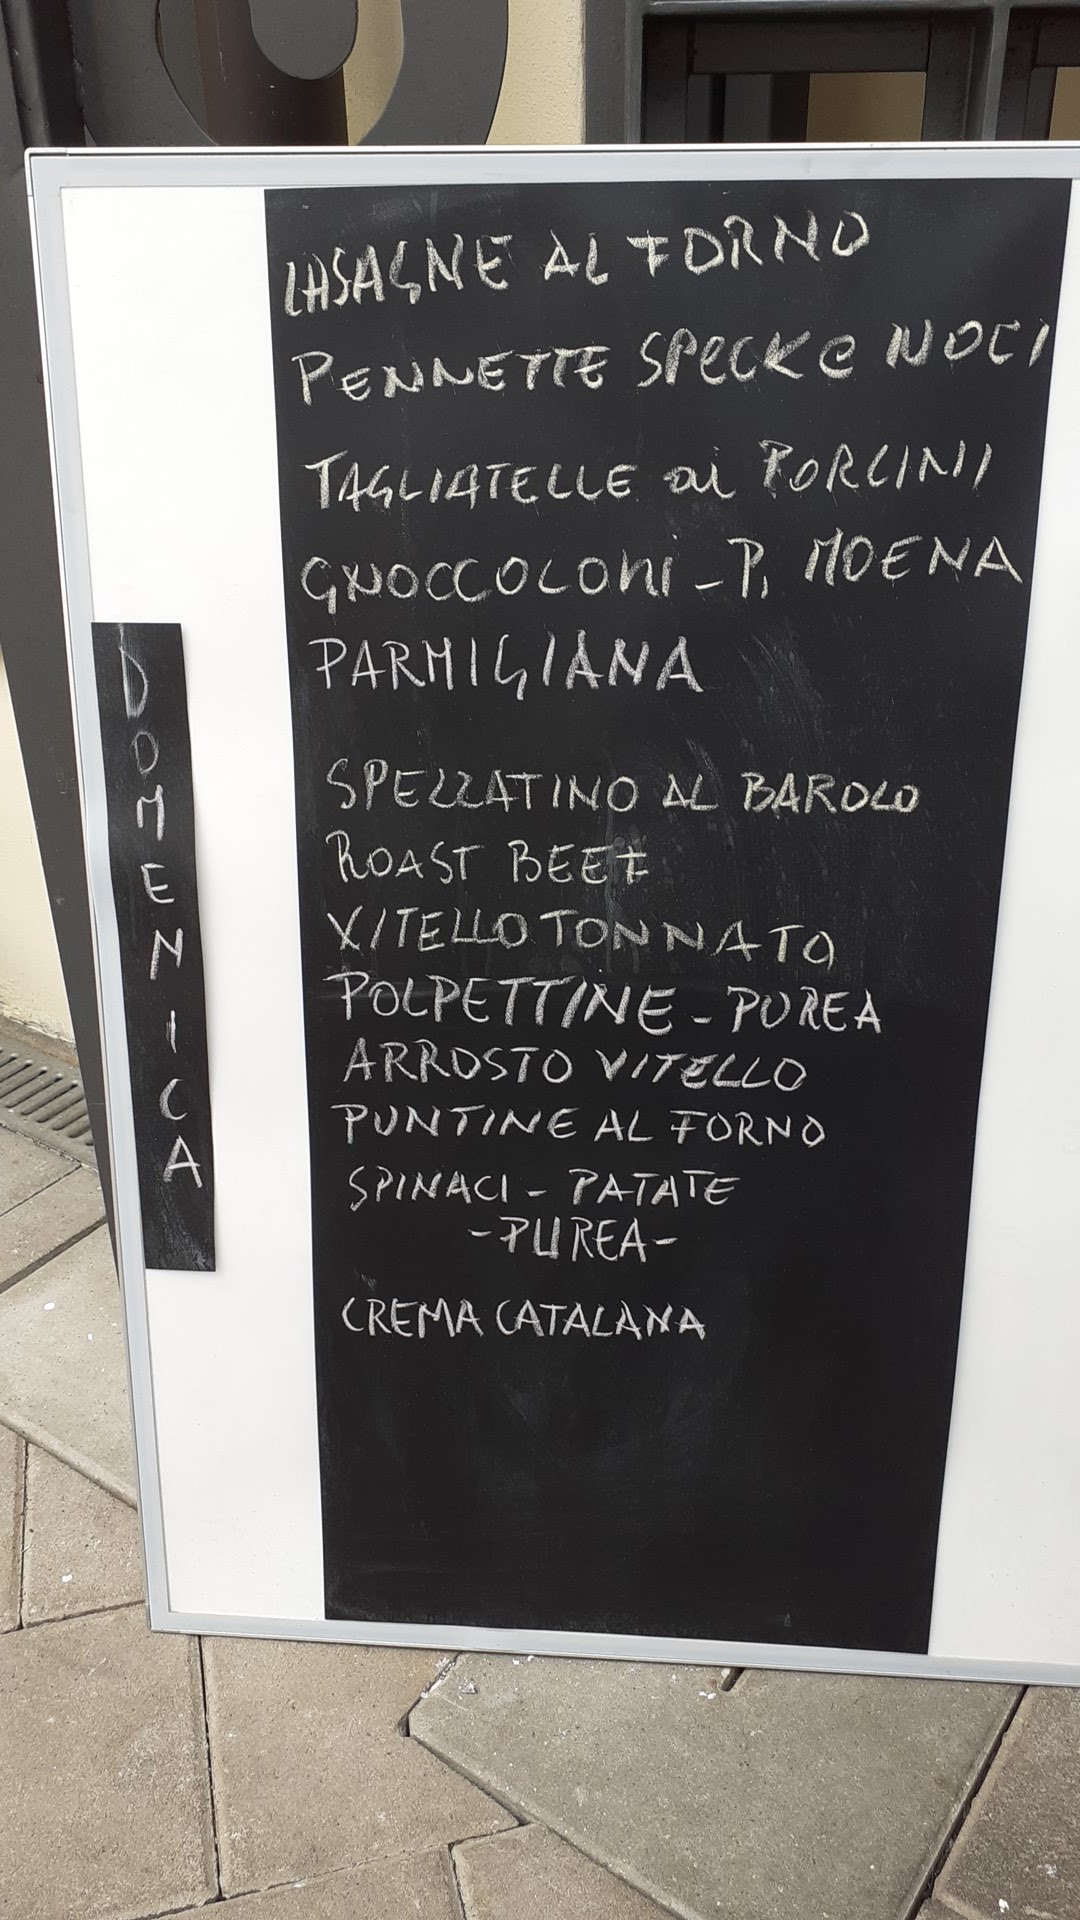 LASAGNE AL FORNO
PENNETTE SPECK e NOCI
TAGLIATELLE ai PORCINI
GNOCCOLONI - P. MOENA
PARMIGIANA
SPEZZATINO AL BAROLO
ROAST BEEF
VITELLO TONNATO
POLPETTINE - PUREA
ARROSTO VITELLO
PUNTINE AL FORNO
SPINACI - PATATE
- PUREA -
CREMA CATALANA
DOMENICA